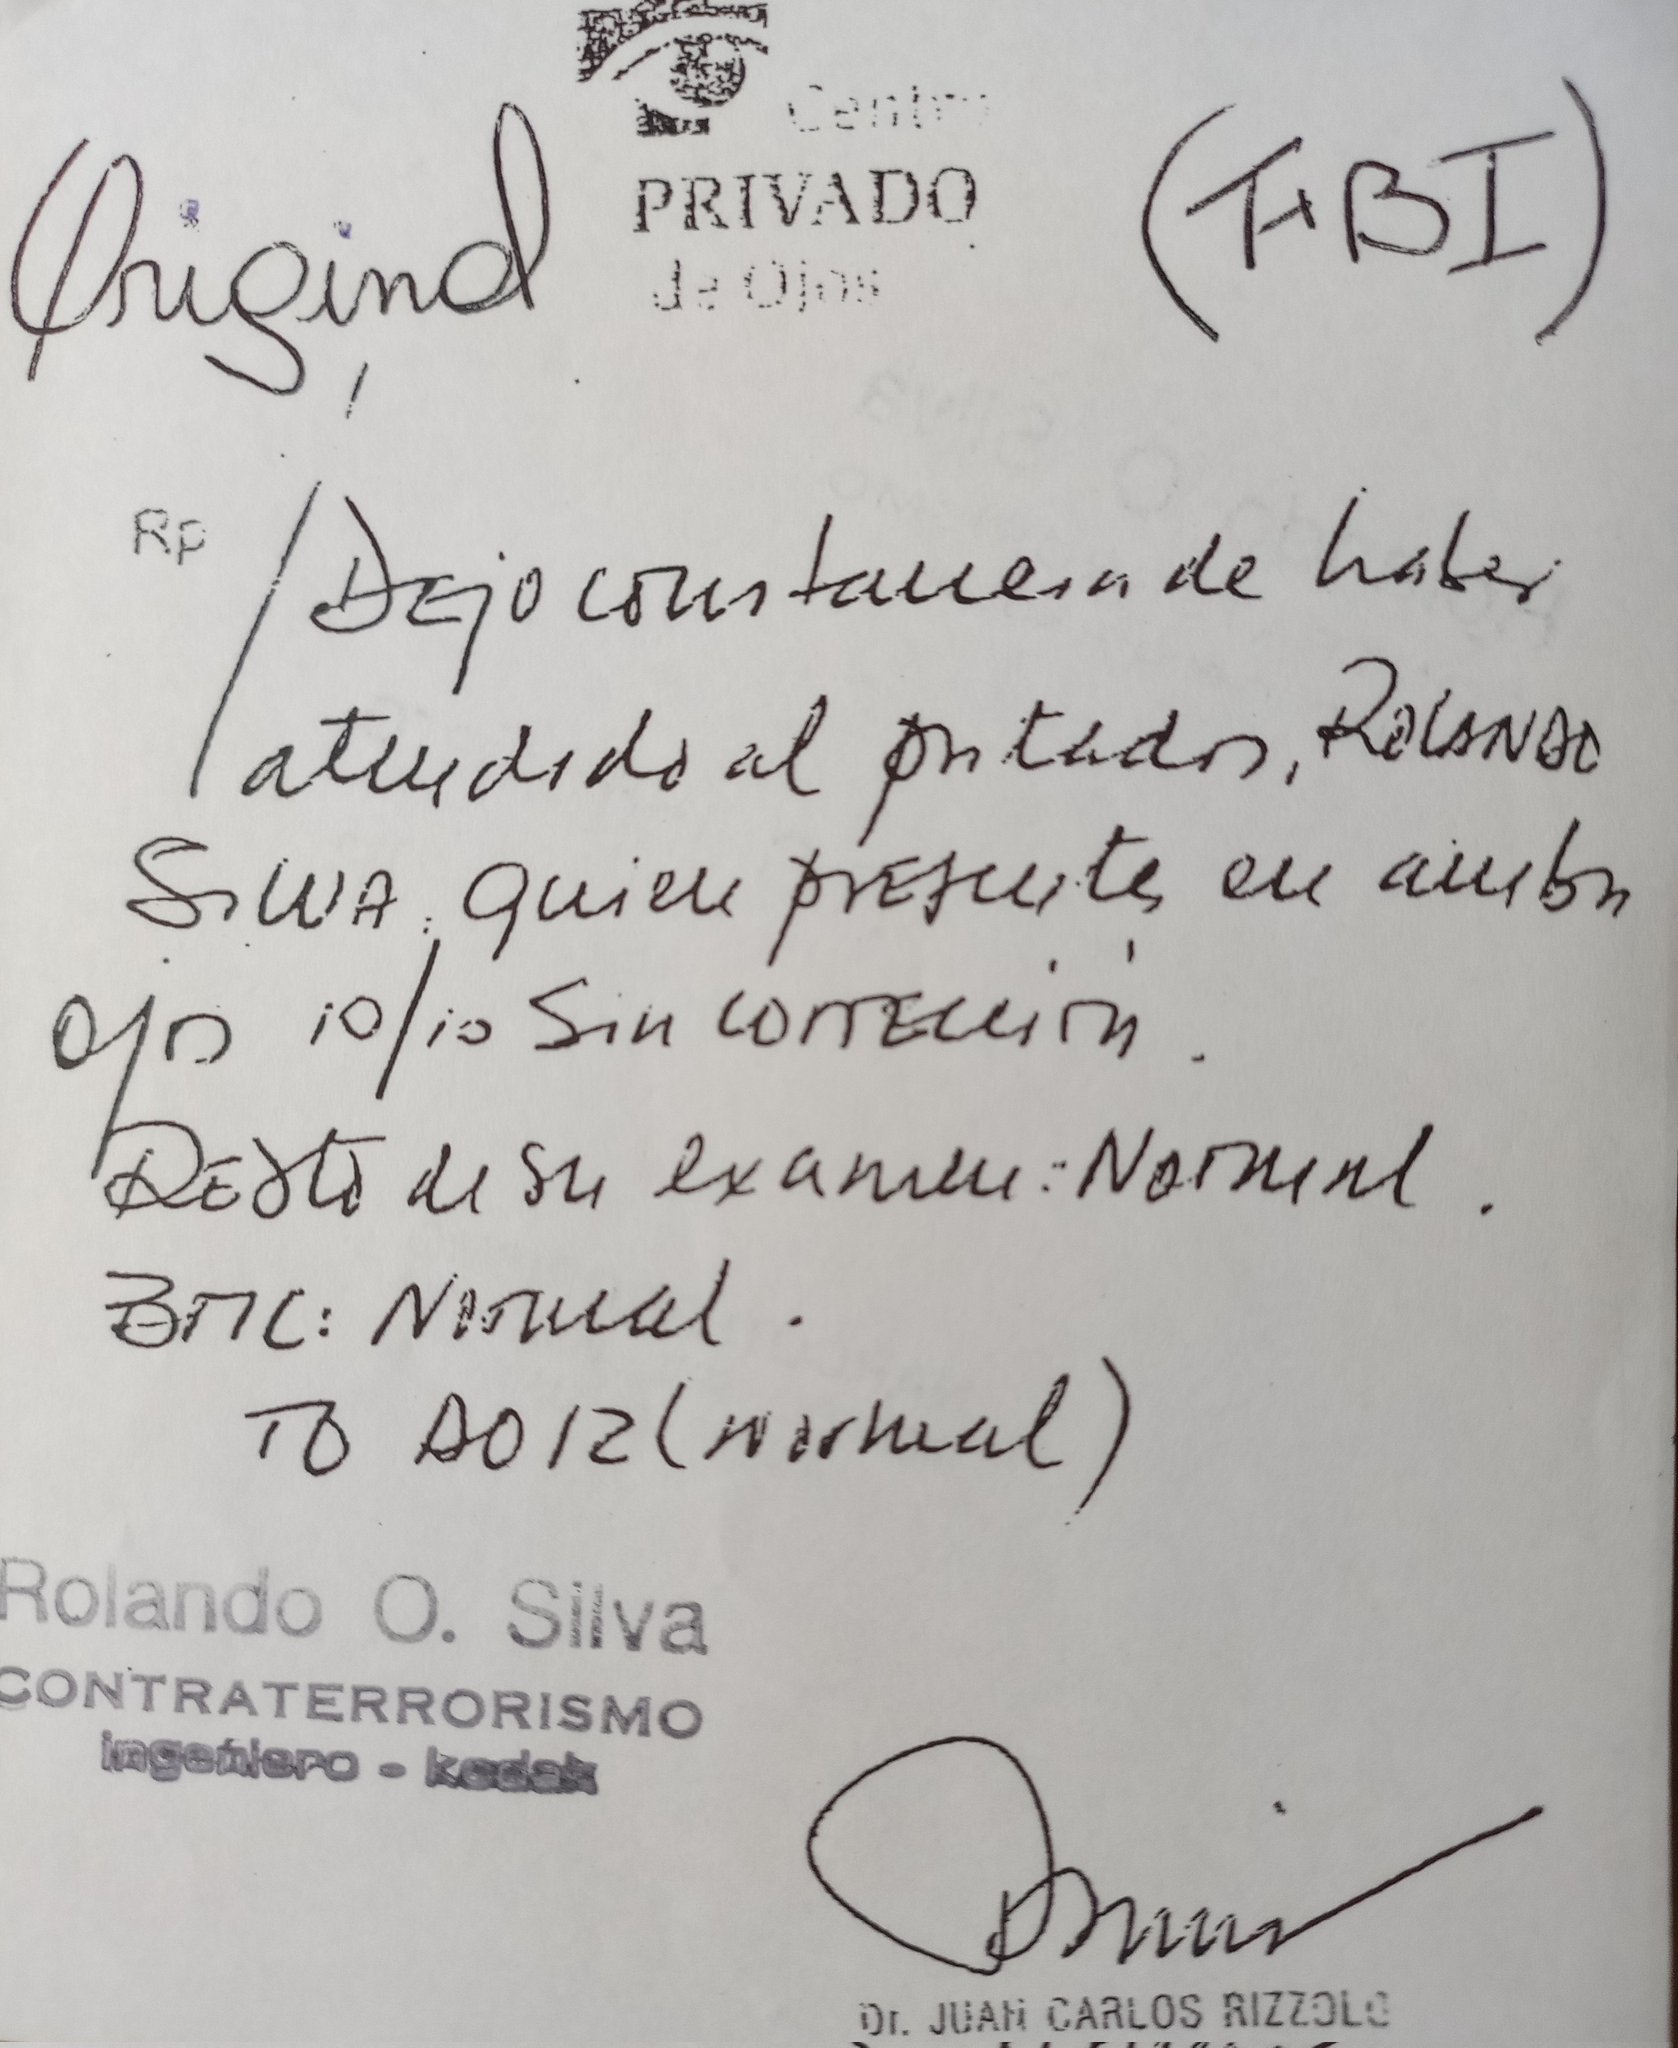 Centro
PRIVADO
de Ojos
Original
(FBI)
Rp
Dejo constancia de haber
atendido al portador, ROLANDO
SILVA. quien presenta en ambos
ojos 10/10 Sin corrección.
Resto de su examen: Normal.
BMC: Normal.
TO AO 12 (normal)
Rolando O. Silva
CONTRATERRORISMO
ingeniero - kodak
Dr. JUAN CARLOS RIZZOLO